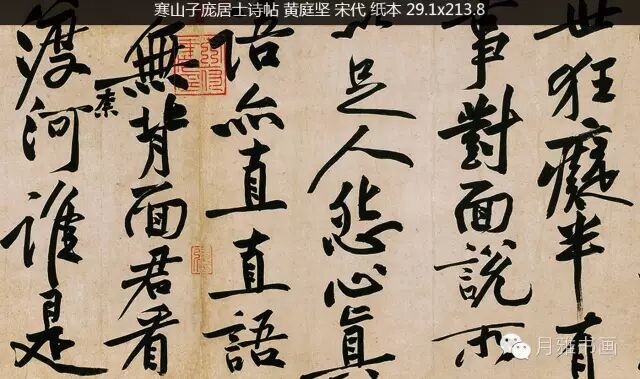 寒山子庞居士诗帖 黄庭坚 宋代 纸本 29.1x213.8
世狂癡半有
事對面說所
以足人怨心真
語亦直直語
無背面君看
渡柰河誰是
月雅书画